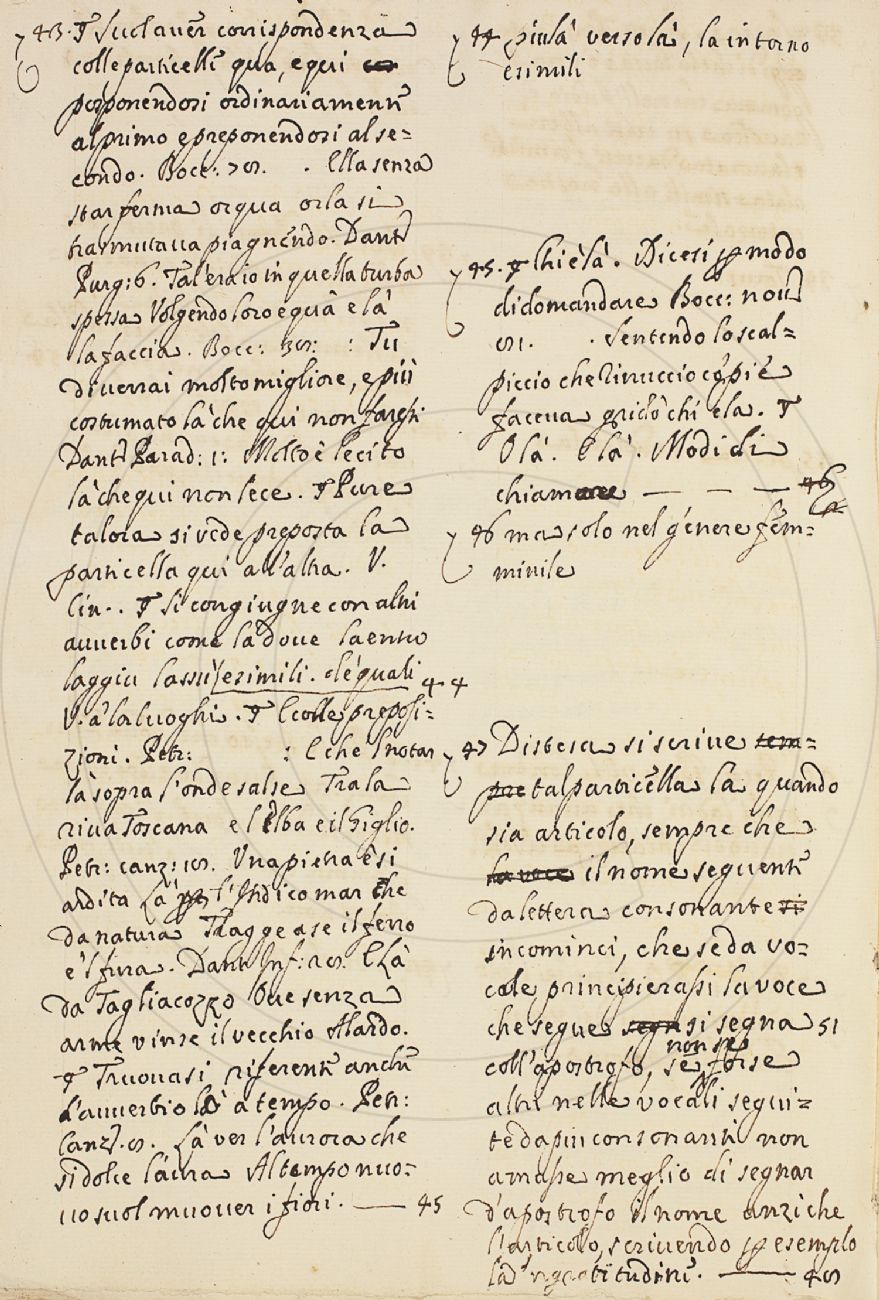 43. ꝑ Suol auer corrispondenza
colle particelle qua, e qui
posponendosi ordinariamente
al primo e preponendosi al se=
condo. Bocc: 78. . Ella senza
star ferma or qua or la si
tramutaua piagnendo. Dante
Purg: 6. Tal'era io in quella turba
spessa Volgendo loro e quà e là
la faccia. Bocc: 38: : Tu
diuerrai molto migliore, e più
costumato là che qui non faresti
Dante Parad: 1: Molto è lecito
là che qui non lece. ꝑ Pure
talora si vede preposta la
particella qui all'altra. V.
lin.. ꝑ Si congiugne con altri
auuerbi come la doue la entro
laggiu lassù e simili. de quali 44
V. a la luoghi. ꝑ E colle preposi=
zioni. Petr: : E che l notar
là sopra l'onde salse Tra la
riua Toscana e l Elba e il Giglio.
Petr: canz: 18. Una pietra è sì
ardita Là per l'Indico mar che
da natura Tragge a se il ferro
e 'l fura. Dante Inf: 28. E Là
da Tagliacozzo Oue senza
arme vinse il vecchio Alardo.
ꝑ Truouasi riferente anche
l'auuerbio là a tempo. Petr:
Canz. 8. Là ver l'aurora che
sì dolce l'aura Al tempo nuo=
uo suol muouer i fiori. — 45
44 piu là verso là, la intorno
e simili
45. ꝑ Chi è là. Dicesi per modo
di domandare Bocc: nou
81. . Sentendo lo scal=
piccio che Rinuccio co piè
faceua gridò chi è la. ꝑ
O là. E là. Modi di
chiamare — — — 46
46 ma solo nel genere fem=
minile
47 Distesa si scriue sem=
pre tal particella la quando
sia articolo, sempre che
la voce il nome seguente
da lettera consonante si
incominci, che se da vo=
cale principierassi la voce
che segue segn si segna 51
coll'apostrofo, se non se forse
altri nelle vocali segui=
te da piu consonanti non
amasse meglio di segnar
d'apostrofo il nome anzi che
l'articolo, scriuendo per esempio
la 'ngratitudine. — 48